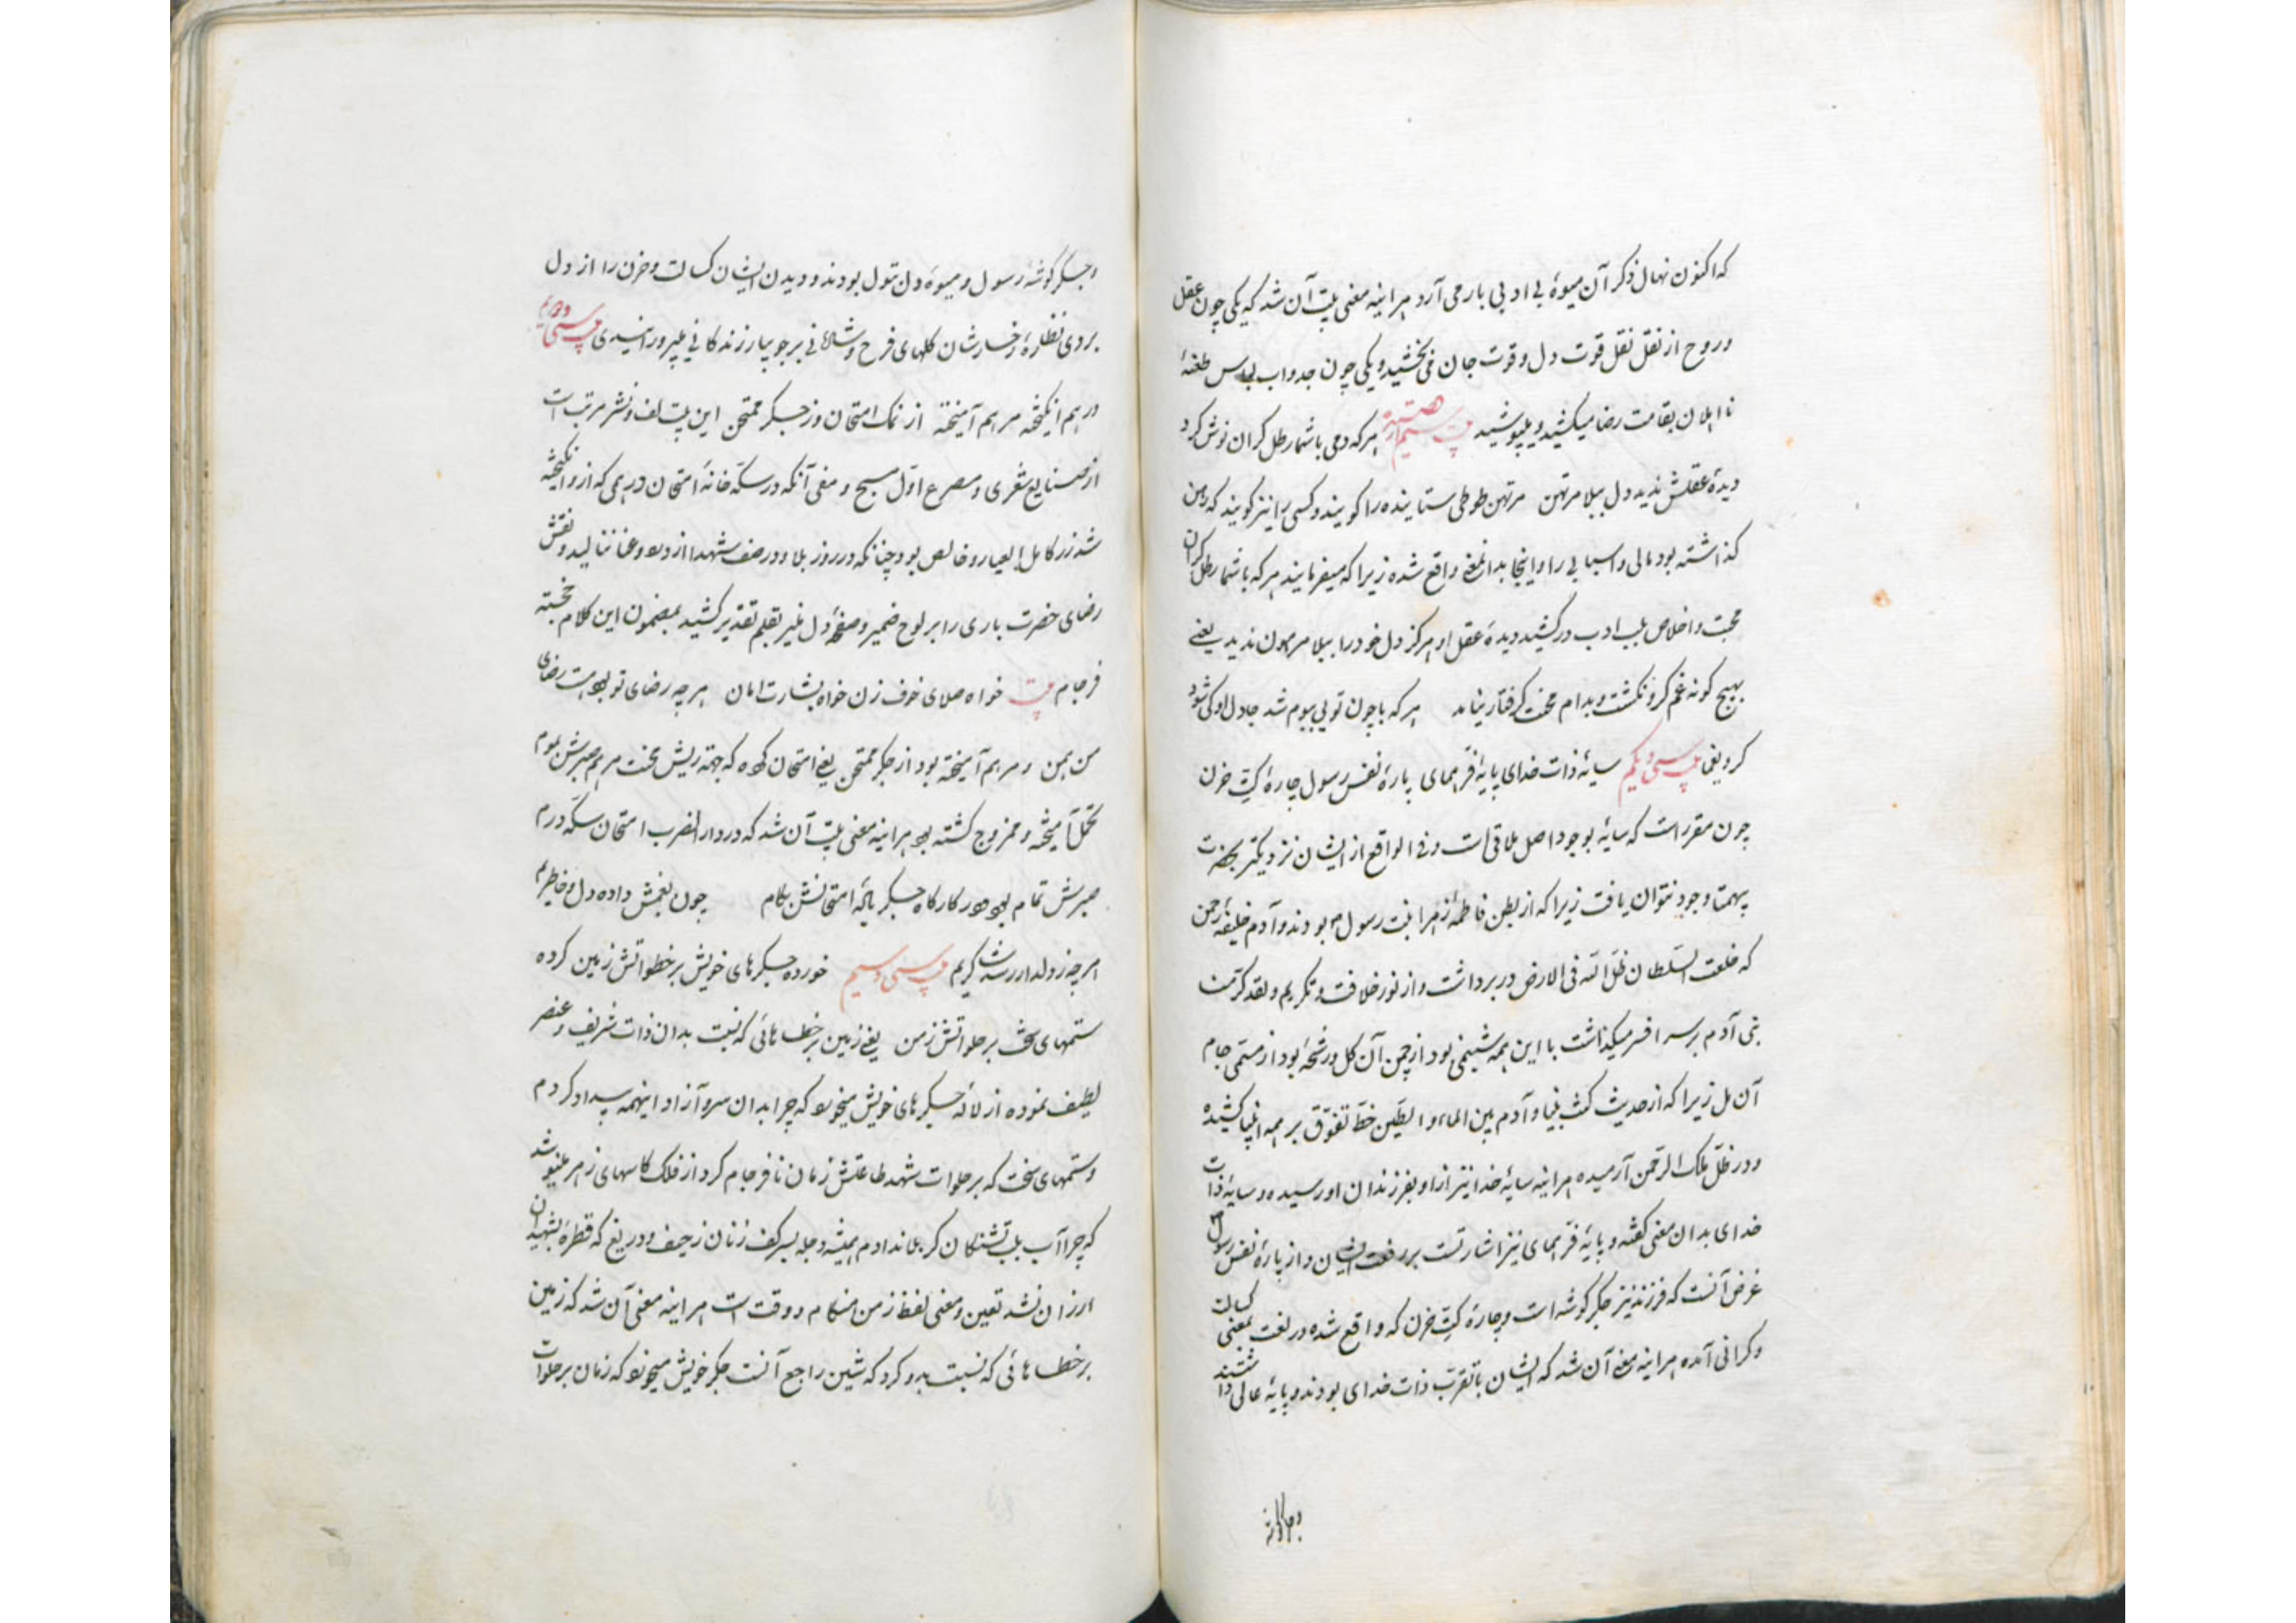 که اکنون نهال ذکر آن میوهٔ بی ادبی بار می آرد هراینه معنی بیت آن شد که یکی چون عقل
و روح از نقل نقل قوت دل و قوت جان می بخشید و یکی چون جدواب لباس طعنهٔ
نااهلان بقامت رضا میکشید و میپوشید بیت سی‌ام هر که دمی با شما رطل گران نوش کرد
دیدهٔ عقلش ندید دل ببلا مرتهن مرتهن طوطی ستاینده را گویند و کسی را نیز گویند که رهن
گذاشته بود مالی و اسبابی را و اینجا بدان معنی واقع شده زیرا که میفرمایند هر که با شما رطل گران
محبت و اخلاص بلب ادب درکشید دیدهٔ عقل او هرگز دل خود را ببلا مرهون ندید یعنی
بهیچ گونه غم گرو نگشت و بدام محنت گرفتار نیامد هر که با چون تویی بیوم شد جا دل او کی شود
گرو یغما بیت سی و یکم سایهٔ ذات خدای پایهٔ فر همای پارهٔ نفس رسول چارهٔ کت حزن
چون مقررات که سایه بوجود اصل ملاقی است و فی الواقع از ایشان نزدیکتر بحضرت
بیهمتا وجود نتوان یافت زیرا که از بطن فاطمهٔ زهرا بنت رسول بودند و آدم خلیفهٔ رحمن
که خلعت السلطان ظل الله فی الارض در بر داشت و از نور خلافت و تکریم و لقد کرمنا
بنی آدم بر سر افسر میگذاشت با این همه شمیمی بود از چمن آن گل و رشحهٔ بود از مستی جام
آن مل زیرا که از حدیث کنت نبیا و آدم بین الماء و الطین خط تفوق بر همه انبیا کشیده
و در ظل ملک الرحمن آرمیده هراینه سایهٔ خدا نیز از او بفرزندان او رسیده و سایهٔ ذات
خدای بدان معنی گفته و پایهٔ فر همای نیز اشارتست بر رفعت ایشان و از پارهٔ نفس رسول
غرض آنست که فرزند نیز جگرگوشه است و چارهٔ کت حزن که واقع شده در لغت بمعنی کسالت
و گرانی آمده هراینه معنی آن شد که ایشان با تقرب ذات خدای بودند و پایهٔ عالی داشتند
و جگرگوشهٔ رسول و میوهٔ دل بتول بودند و دیدن ایشان کسالت و حزن را از دل
بردی نظارهٔ رخسارشان گلهای فرح و شادمانی بر جویبار زندگانی میپرورانیدی بیت سی و دویم
درهم انگیخته مرهم آمیخته از نمک امتحان وز جگر ممتحن این بیت لف و نشر مرتب است
از صنایع شعری و مصرع اول مسجع و معنی آنکه در سکه خانهٔ امتحان درهمی که ازو انگیخته
شد زر کامل العیار و خالص بود چنانکه در روز بلا و در صف شهدا از درد و عنا ننالید و نقش
رضای حضرت باری را بر لوح ضمیر و صفحهٔ دل منیر بقلم تقدیر کشید بمضمون این کلام خجسته
فرجام بیت خواه صلای خوف زن خواه بشارت امان هر چه رضای تو بود هست رضای
من همن و مرهم آمیخته بود از جگر ممتحن یعنی امتحان کرده که جهته ریش محنت مرهم صبرش بموم
تحمل آمیخته و ممزوج گشته بود هراینه معنی بیت آن شد که در دار الضرب امتحان سکه درم
صبرش تمام بود و در کارگاه جگر امتحانش بکام چون بغمش داده دل و خاطرم
هر چه ز دلدار رسد شاکرم بیت سی و سیم خورده جگرهای خویش بر خطواتش زمین کرده
ستمهای سخت بر حلواتش زمن یعنی زمین بر خطاهائی که نسبت بدان ذات شریف و عنصر
لطیف نموده از لاله جگرهای خویش میخورد که چرا بدان سرو آزاد اینهمه بیداد کردم
و ستمهای سخت که بر حلوات شهد طاعتش زمان نافرجام کرد از فلک کاسهای زهر مینوشد
که چرا آب بلب تشنگان کربلا ندادم همیشه دجله بسر کف زنان ز حیف و دریغ که قطرهٔ بشهیدان
ارزان نشد تعین و معنی لفظ زمن هنگام و وقت است هراینه معنی آن شد که زمین
بر خطاهائی که نسبت بدو کرد که شین راجع آنست جگر خویش میخورد که زمان بر حلوات